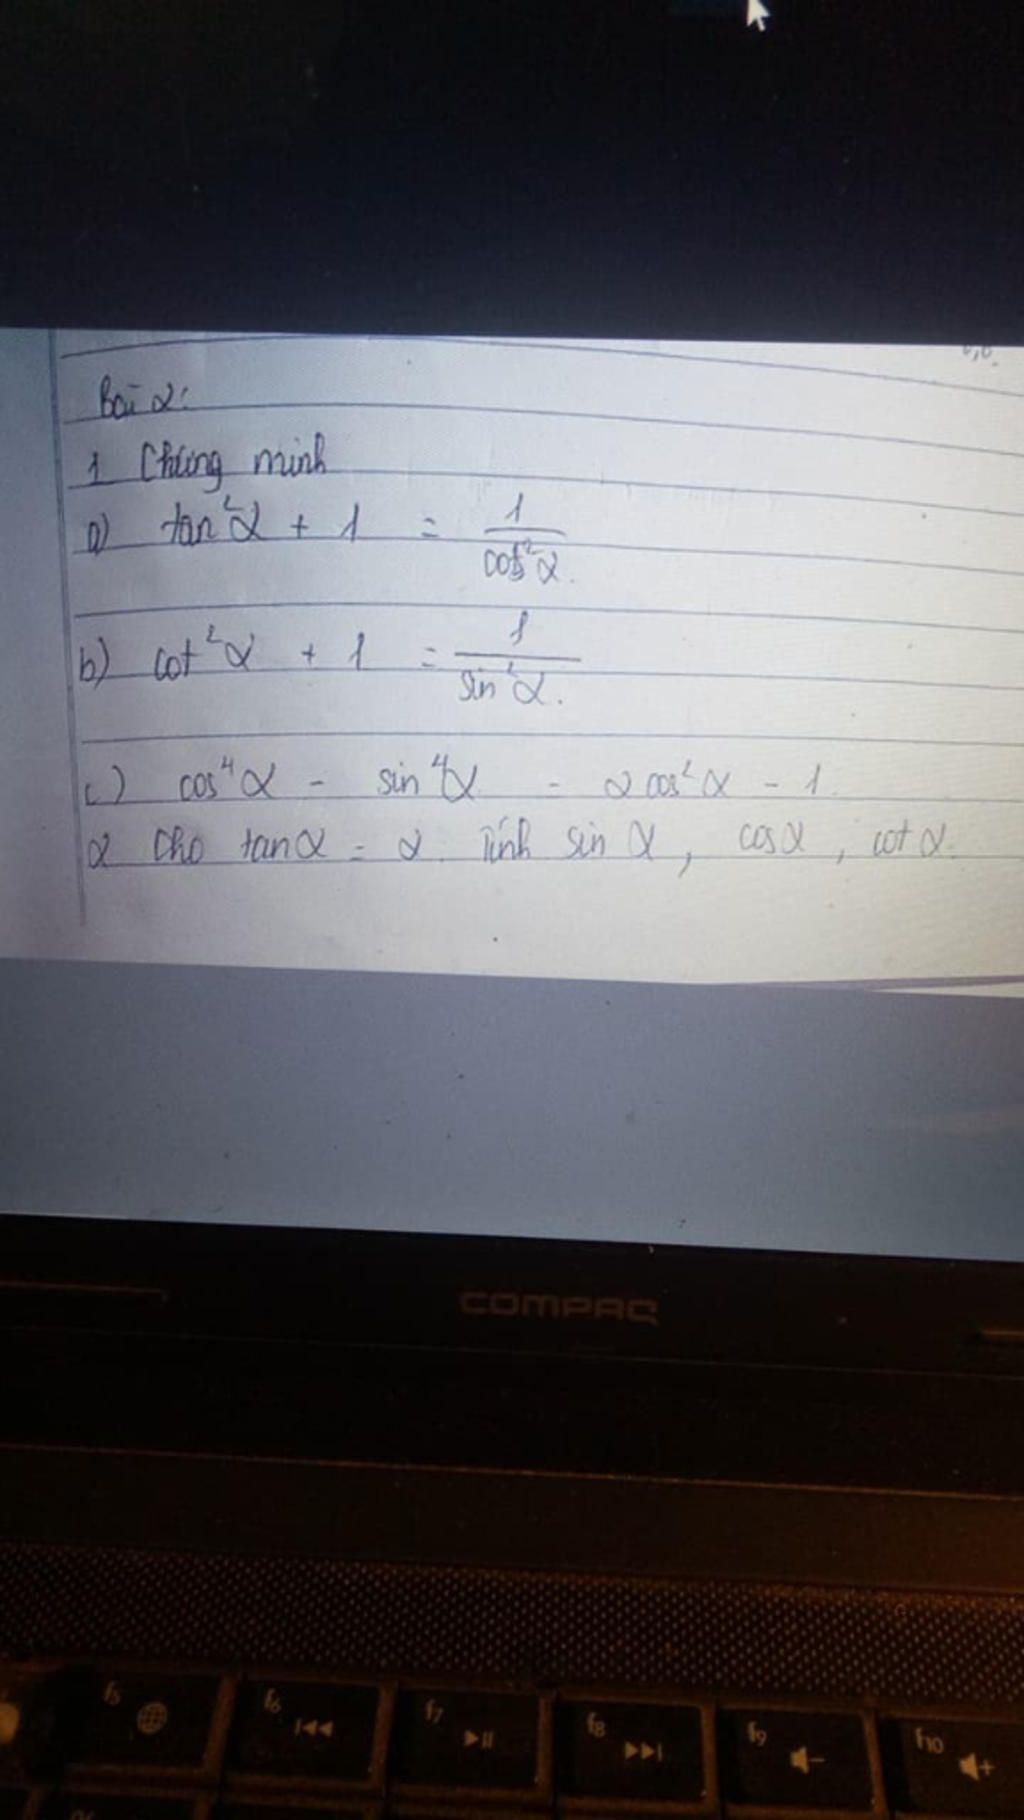 Bài 2:
1 Chứng minh
a) tan²α + 1 = 1/cos²α.
b) cot²α + 1 = 1/sin²α.
c) cos⁴α - sin⁴α = 2cos²α - 1.
2 Cho tanα = 2. Tính sin α, cosα, cot α.
COMPAQ
f5 f6 f7 f8 f9 f10